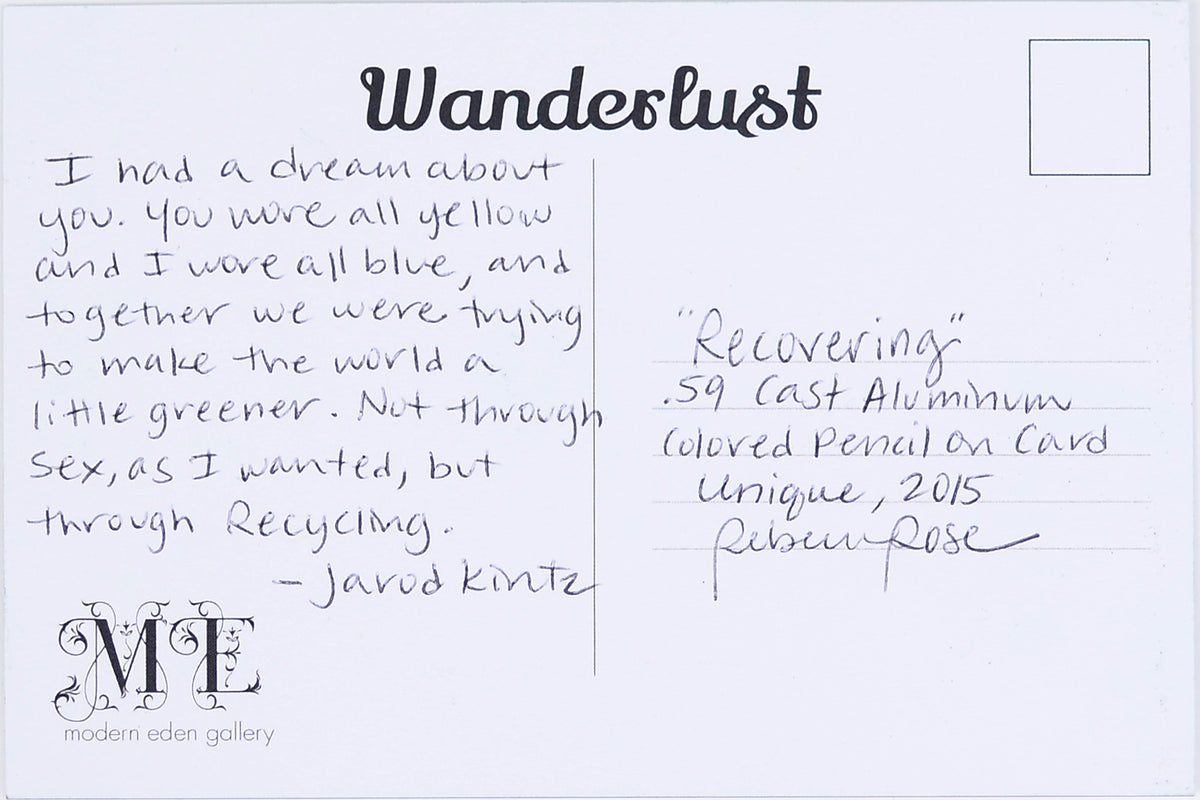 Wanderlust
I had a dream about
you. You wore all yellow
and I wore all blue, and
together we were trying
to make the world a
little greener. Not through
sex, as I wanted, but
through Recycling.
- Jarod Kintz
ME
modern eden gallery
"Recovering"
.59 Cast Aluminum
Colored Pencil on Card
Unique, 2015
Rose